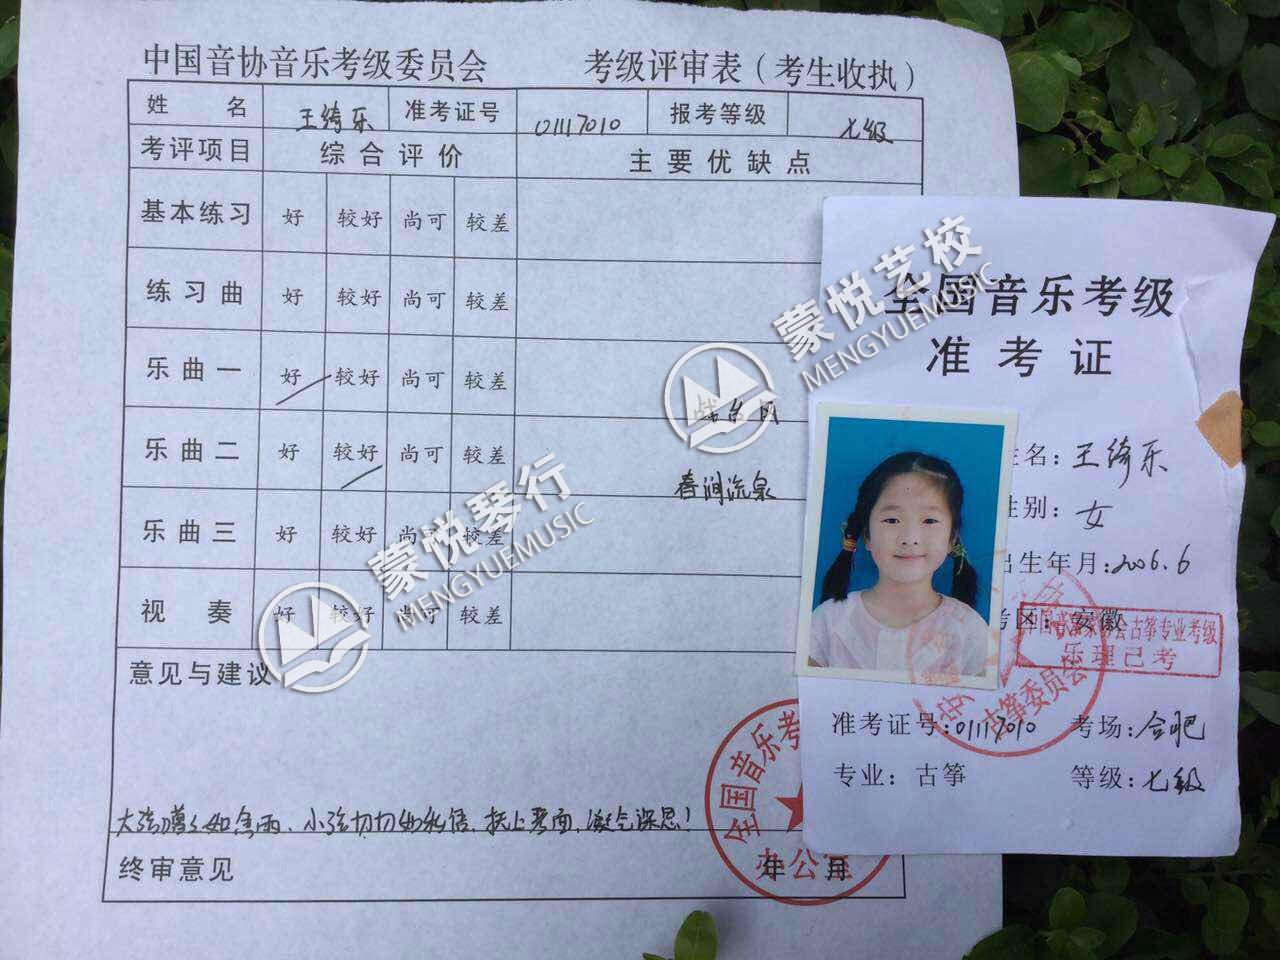 中国音协音乐考级委员会 考级评审表（考生收执）
姓 名 王绮乐 准考证号 01117010 报考等级 七级
考评项目 综合评价 主要优缺点
基本练习 好 较好 尚可 较差
练习曲 好 较好 尚可 较差
乐曲一 好 较好 尚可 较差 战台风
乐曲二 好 较好 尚可 较差 春涧流泉
乐曲三 好 较好 尚可 较差
视 奏 好 较好 尚可 较差
意见与建议
大弦嘈嘈如急雨、小弦切切如私语、抚上琴面、凝气深思！
终审意见
年 月
全国音乐考
办公室
全国音乐考级
准考证
姓名：王绮乐
性别：女
出生年月：2006.6
考区：安徽
古筝专业考级
乐理已考
古筝委员会
准考证号：01117010 考场：合肥
专业：古筝 等级：七级
蒙悦艺校
MENGYUEMUSIC
蒙悦琴行
MENGYUEMUSIC